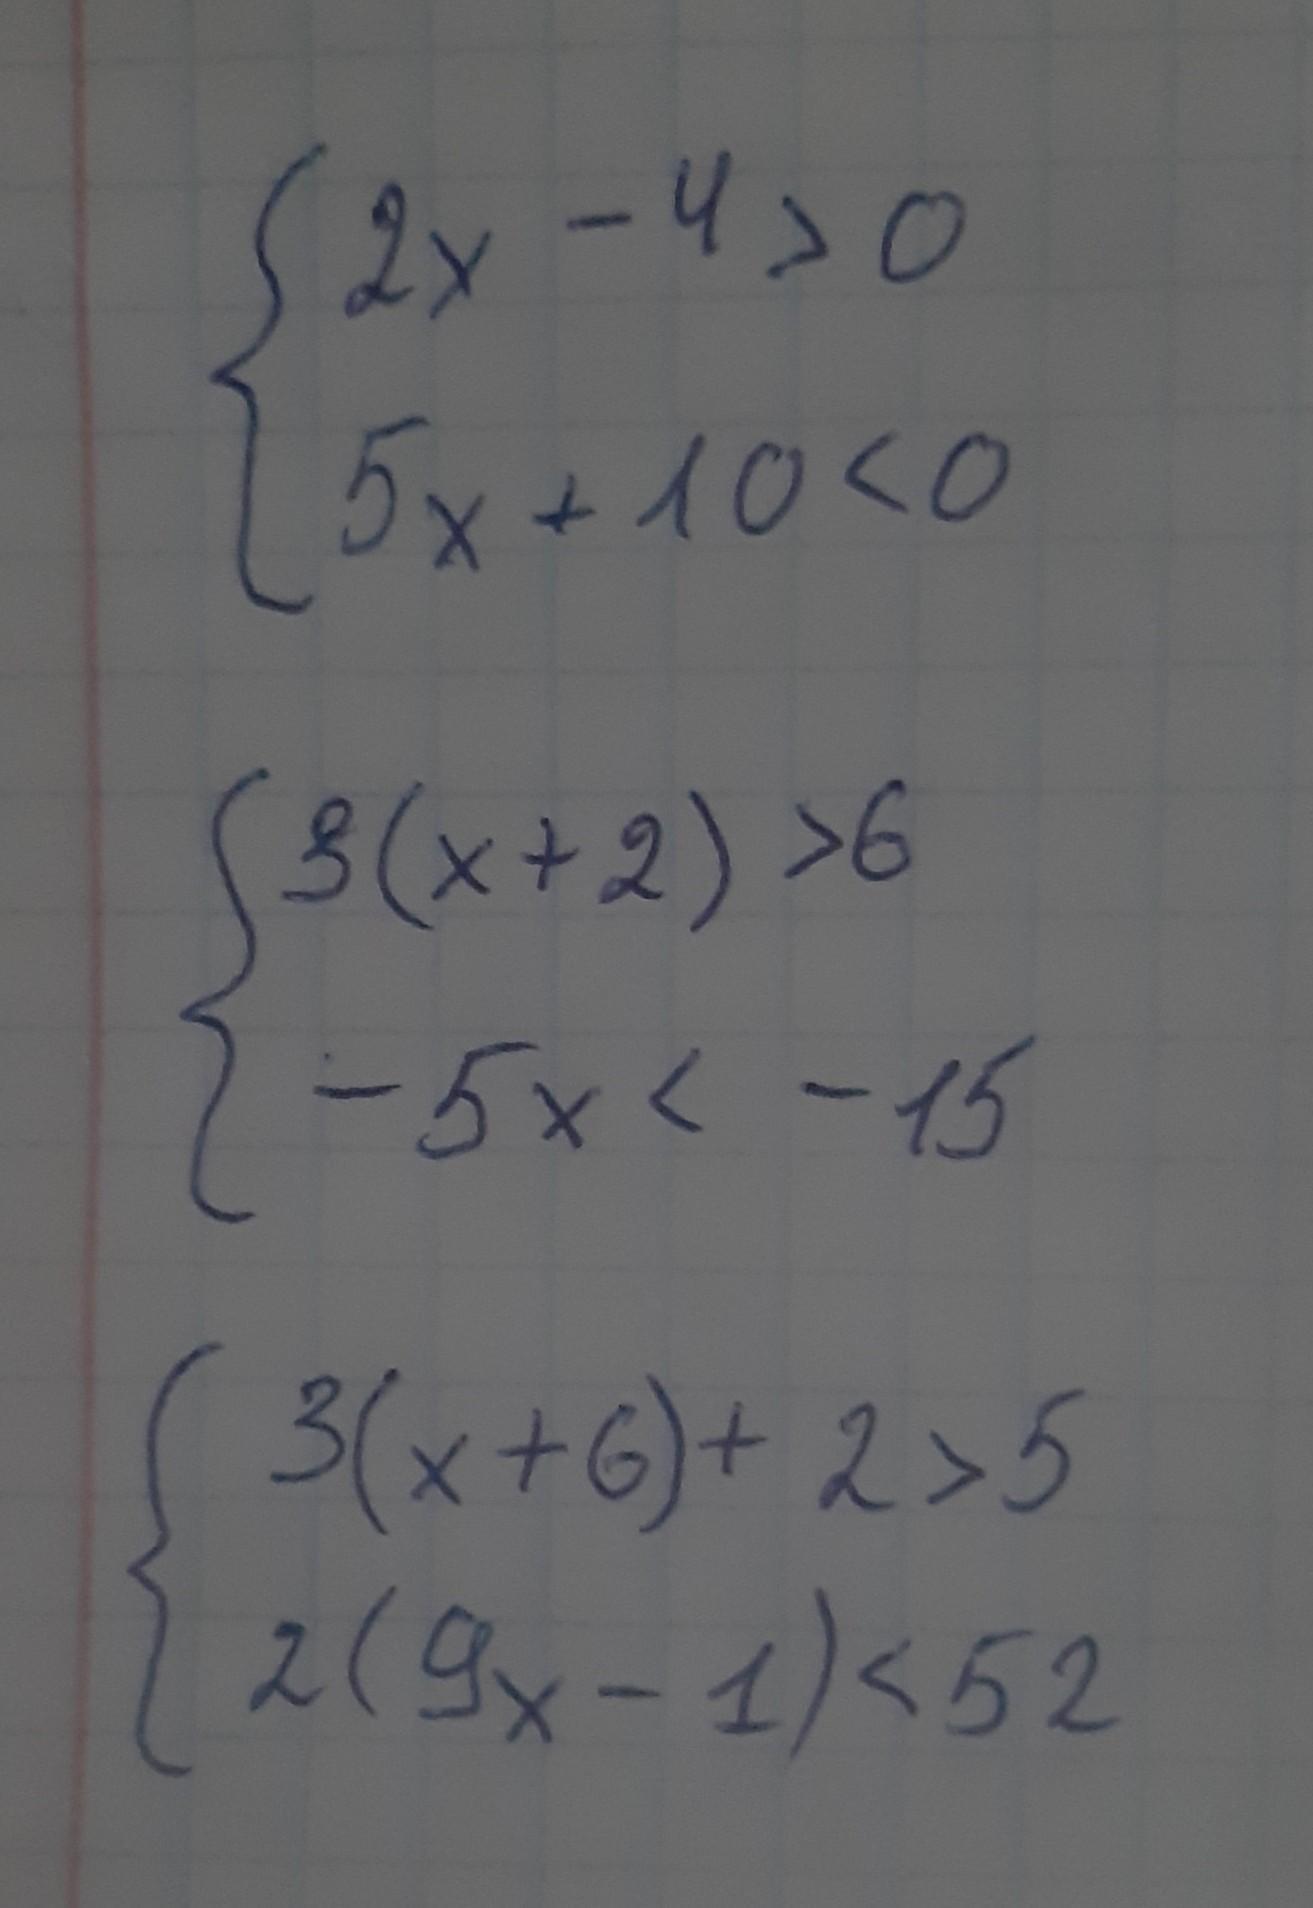 2x - 4 > 0
5x + 10 < 0
3(x+2) > 6
-5x < -15
3(x+6)+ 2 > 5
2(9x - 1) < 52